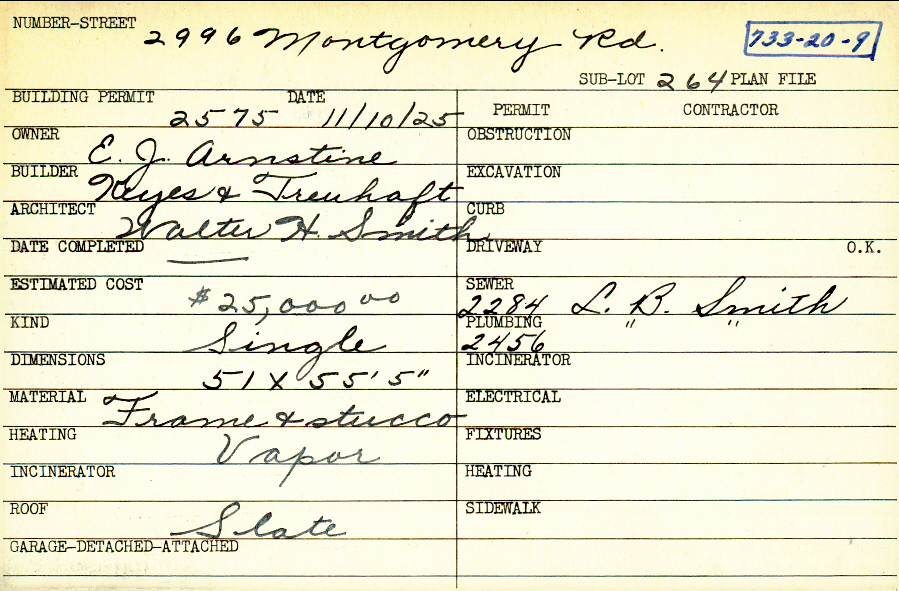 NUMBER-STREET 2996 Montgomery Rd. 733-20-9
SUB-LOT 264 PLAN FILE
BUILDING PERMIT 2575 DATE 11/10/25 PERMIT CONTRACTOR
OWNER E. J. Arnstine OBSTRUCTION
BUILDER Keyes & Treuhaft EXCAVATION
ARCHITECT Walter H. Smith CURB
DATE COMPLETED — DRIVEWAY O.K.
ESTIMATED COST $25,000 00 SEWER 2284 L. B. Smith
KIND Single PLUMBING 2456 " "
DIMENSIONS 51 X 55' 5" INCINERATOR
MATERIAL Frame & stucco ELECTRICAL
HEATING Vapor FIXTURES
INCINERATOR HEATING
ROOF Slate SIDEWALK
GARAGE-DETACHED-ATTACHED